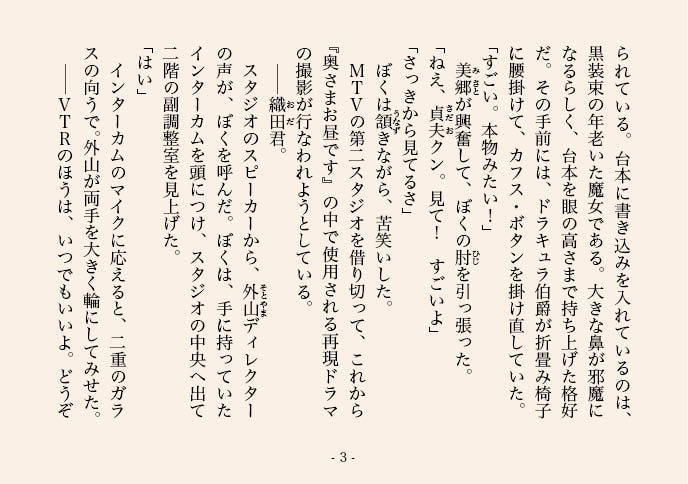 られている。台本に書き込みを入れているのは、
黒装束の年老いた魔女である。大きな鼻が邪魔に
なるらしく、台本を眼の高さまで持ち上げた格好
だ。その手前には、ドラキュラ伯爵が折畳み椅子
に腰掛けて、カフス・ボタンを掛け直していた。
「すごい。本物みたい！」
美郷が興奮して、ぼくの肘を引っ張った。
「ねえ、貞夫クン。見て！　すごいよ」
「さっきから見てるさ」
ぼくは頷きながら、苦笑いした。
ＭＴＶの第二スタジオを借り切って、これから
『奥さまお昼です』の中で使用される再現ドラマ
の撮影が行なわれようとしている。
――織田君。
スタジオのスピーカーから、外山ディレクター
の声が、ぼくを呼んだ。ぼくは、手に持っていた
インターカムを頭につけ、スタジオの中央へ出て
二階の副調整室を見上げた。
「はい」
インターカムのマイクに応えると、二重のガラ
スの向うで。外山が両手を大きく輪にしてみせた。
――ＶＴＲのほうは、いつでもいいよ。どうぞ
- 3 -